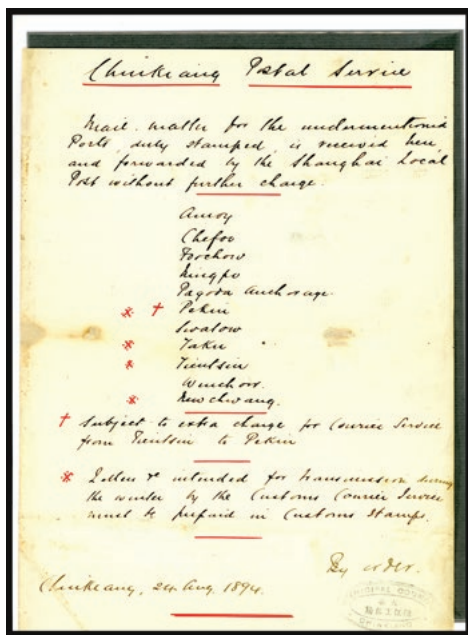 Chinkiang Postal Service
Mail matter for the undermentioned
Ports, duly stamped, is received here
and forwarded by the Shanghai Local
Post without further charge.
Amoy
Chefoo
Foochow
Ningpo
Pagoda Anchorage.
※ † Pekin
Swatow
※ Taku "
※ Tientsin
Wenchow.
※ Newchwang.
† Subject to extra charge for Courier Service
from Tientsin to Pekin
※ Letters &c intended for transmission during
the winter by the Customs Courier Service
must be prepaid in Customs Stamps.
By order.
Chinkiang, 24 Aug. 1894.
MUNICIPAL COUNCIL
CHINKIANG